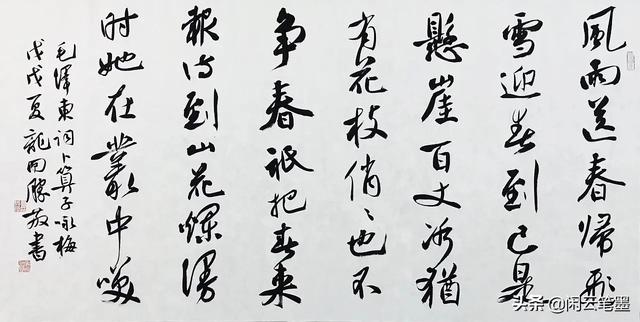 風雨送春歸飛
雪迎春到已是
懸崖百丈冰猶
有花枝俏〻也不
争春祇把春来
報待到山花爛漫
时她在叢中咲
毛澤東詞卜算子咏梅
戊戌夏龍勝敬書
头条 @闲云笔墨